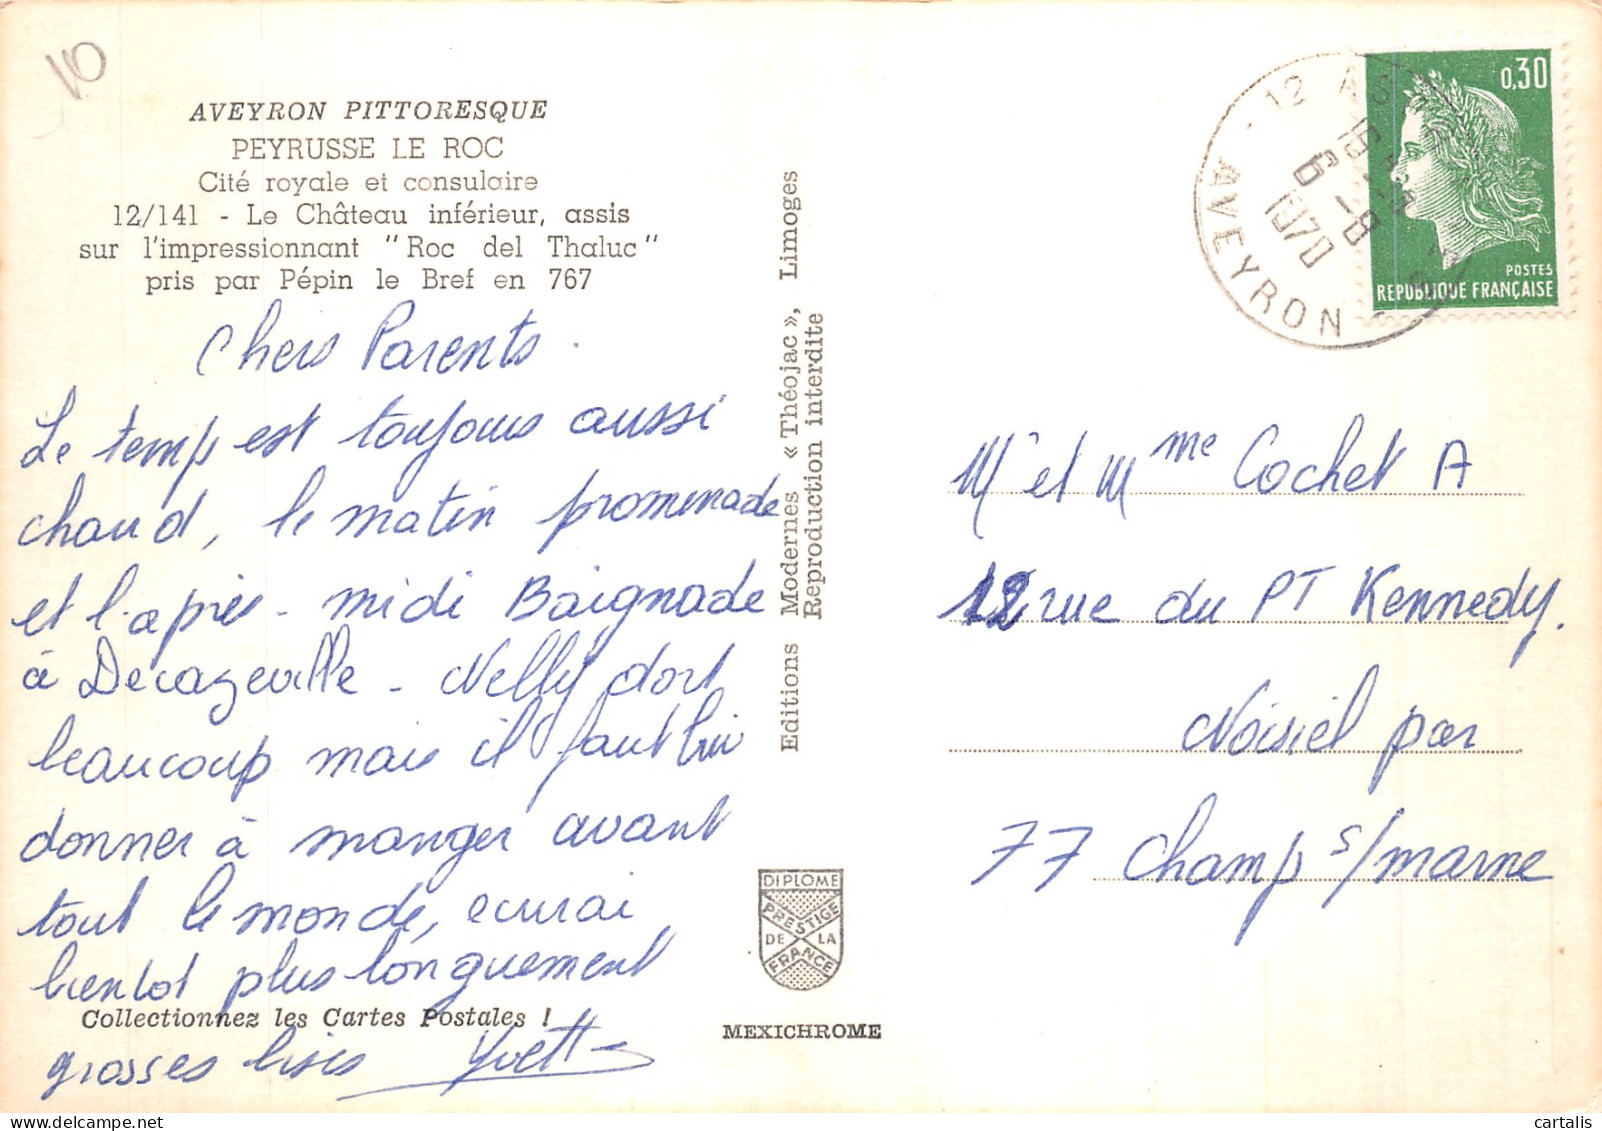 10
AVEYRON PITTORESQUE
PEYRUSSE LE ROC
Cité royale et consulaire
12/141 - Le Château inférieur, assis
sur l'impressionnant "Roc del Thaluc"
pris par Pépin le Bref en 767
Chers Parents.
Le temps est toujours aussi
chaud, le matin promenade
et l'après-midi Baignade
à Decazeville - Nelly dort
beaucoup mais il faut lui
donner à manger avant
tout le monde, ecrirai
bientot plus longuement
Collectionnez les Cartes Postales !
grosses bises Yvette
Editions Modernes « Théojac », Limoges
Reproduction interdite
DIPLOME
PRESTIGE
DE LA
FRANCE
MEXICHROME
12 A
6 - 8
1970
AVEYRON
0,30
POSTES
REPUBLIQUE FRANÇAISE
Mr et Mme Cochet A
12 rue du PT Kennedy.
Noisiel par
77 Champ s/marne
cartalis